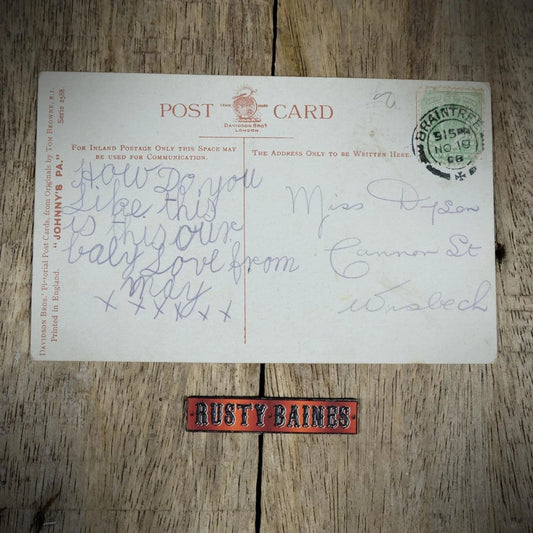 POST CARD
TRADE MARK
DAVIDSON BROS.
LONDON
FOR INLAND POSTAGE ONLY THIS SPACE MAY
BE USED FOR COMMUNICATION.
THE ADDRESS ONLY TO BE WRITTEN HERE.
How Do you
Like this
is this our
baby Love from
may
x x x x x x
Miss Dyson
Cannon St
Wisbech
BRAINTREE
515PM
NO 19
08
DAVIDSON BROS.' Pictorial Post Cards, from Originals by TOM BROWNE, R.I. Serie 2588.
Printed in England. "JOHNNY'S PA."
RUSTY BAINES